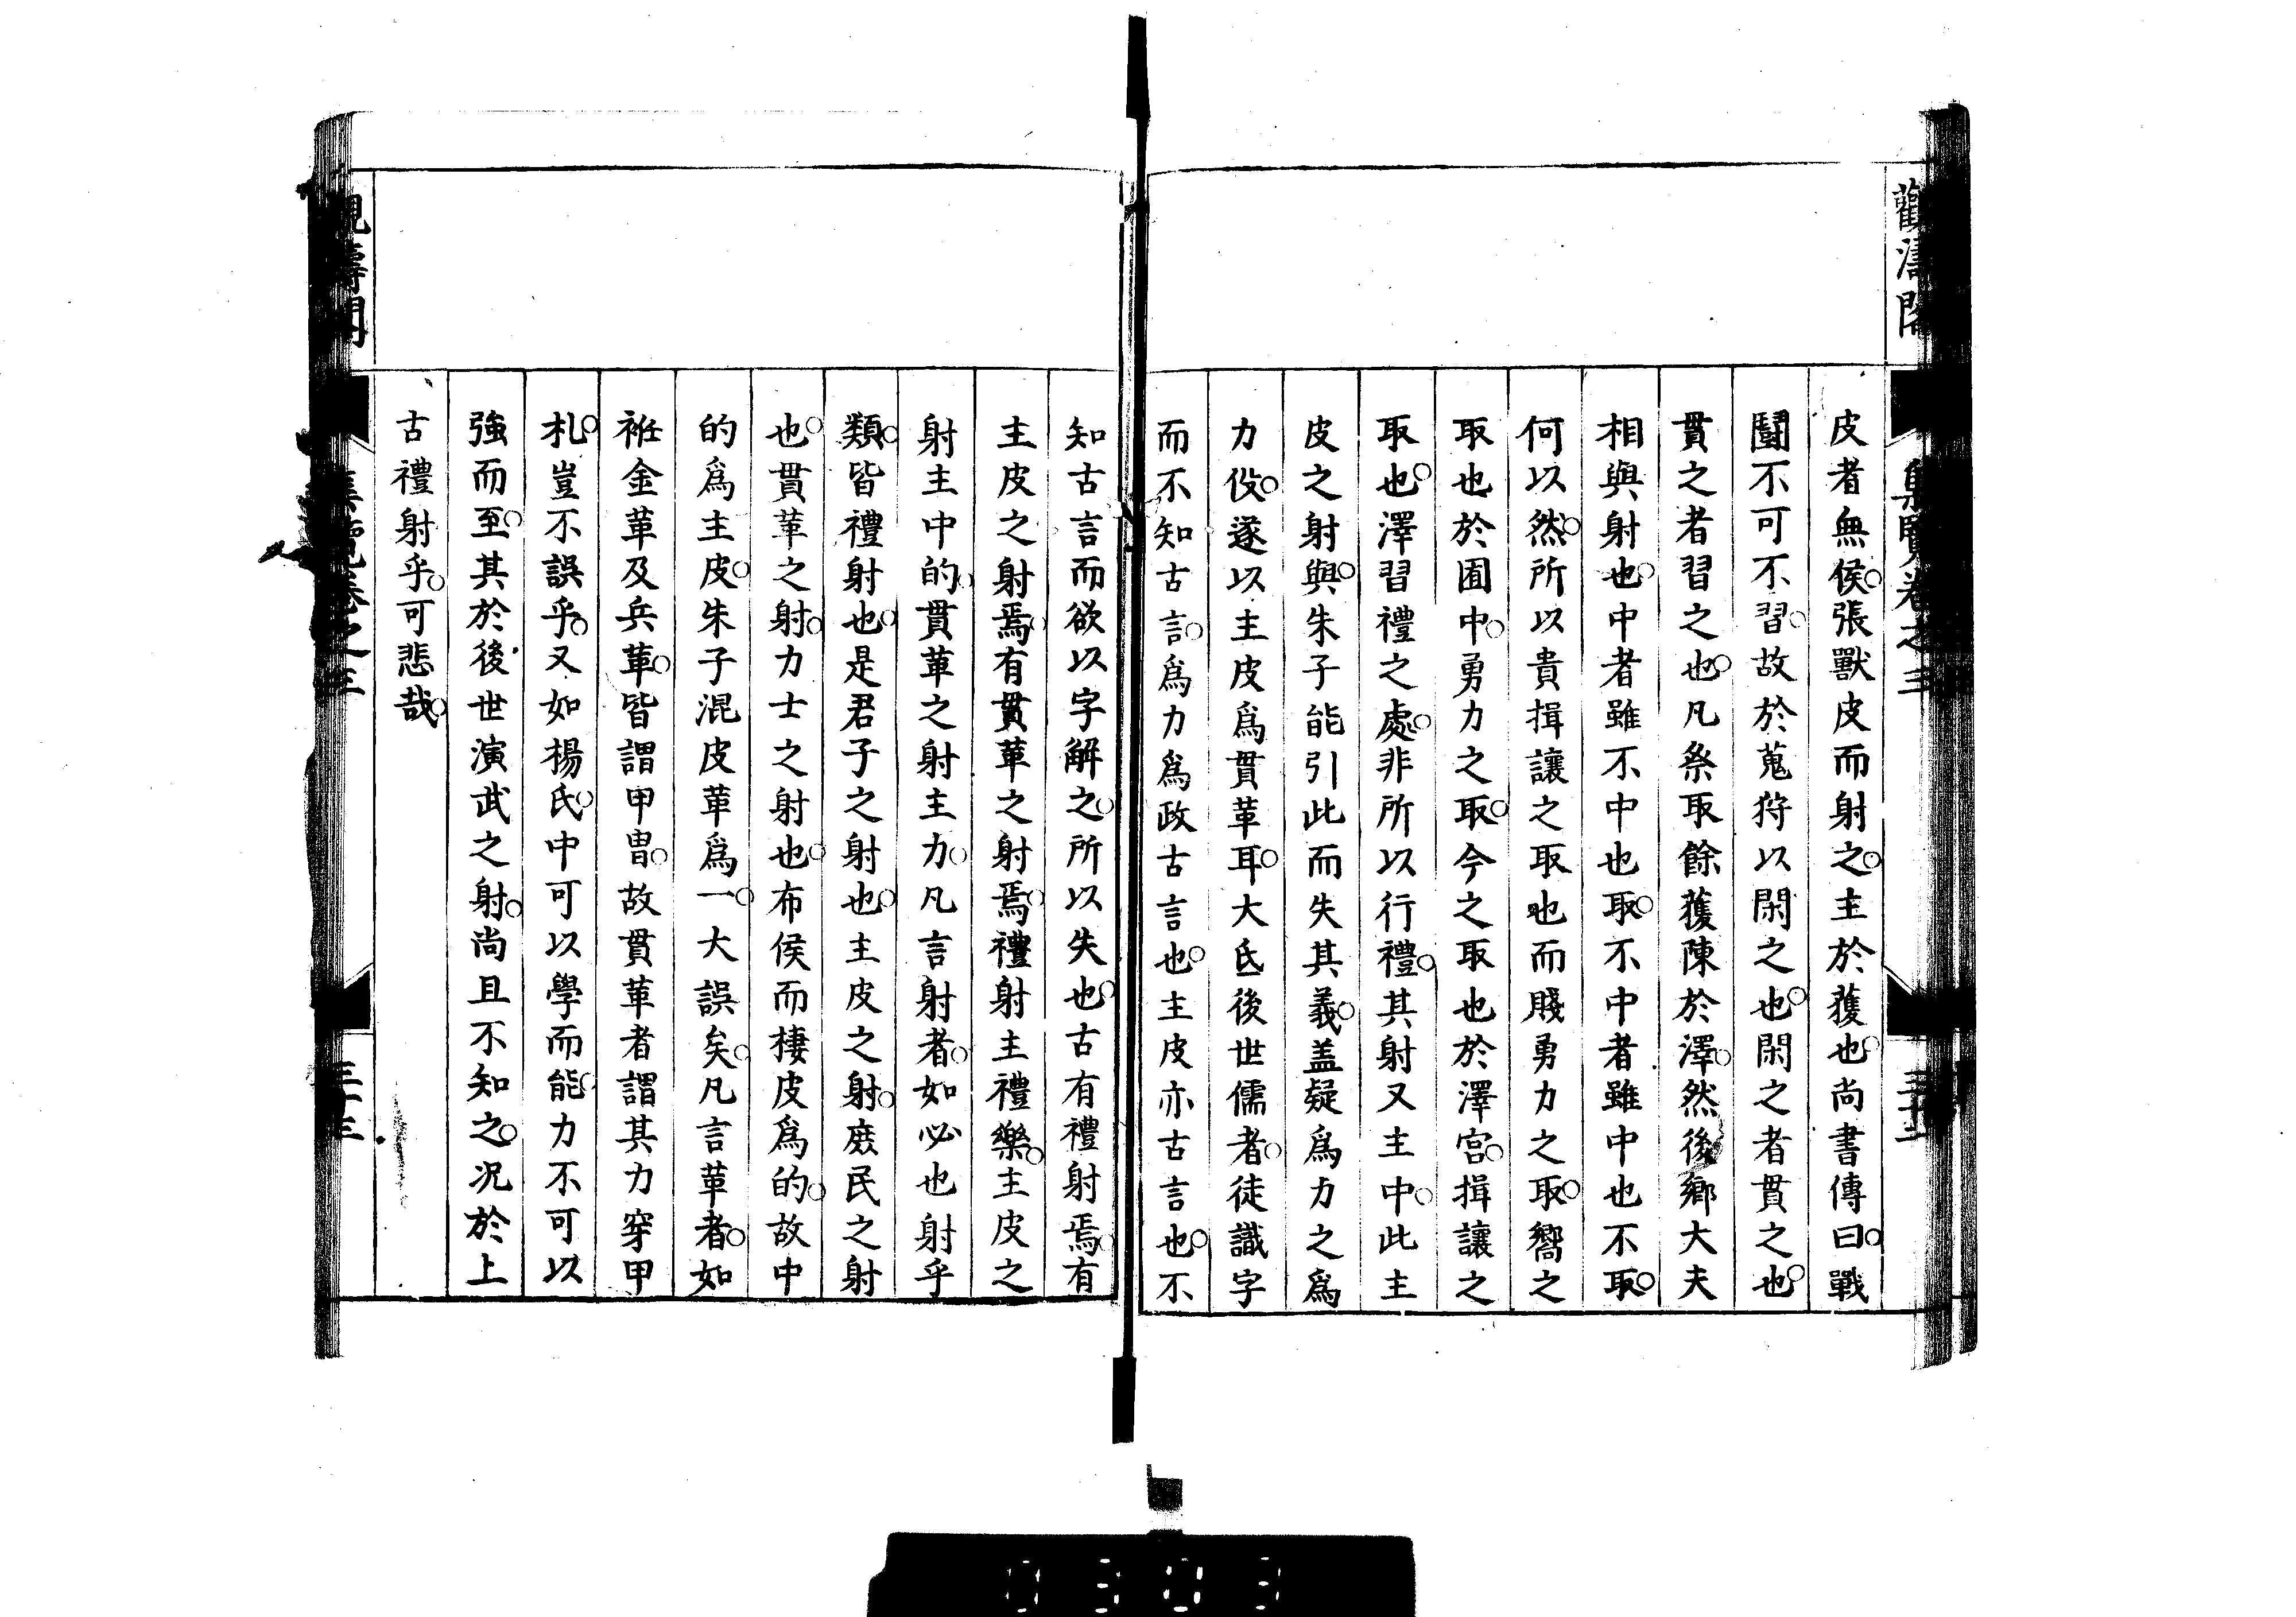 觀濤閣
皮者無侯。張獸皮而射之。主於獲也。尚書傳曰。戰
鬪不可不習。故於蒐狩以閑之也。閑之者貫之也。
貫之者習之也。凡祭取餘獲陳於澤。然後鄉大夫
相與射也。中者雖不中也取。不中者雖中也不取。
何以然。所以貴揖讓之取也而賤勇力之取。嚮之
取也於囿中。勇力之取。今之取也於澤宮。揖讓之
取也。澤習禮之處。非所以行禮。其射又主中。此主
皮之射與。朱子能引此而失其義。盖疑爲力之爲
力役。遂以主皮爲貫革耳。大氐後世儒者。徒識字
而不知古言。爲力爲政古言也。主皮亦古言也。不
知古言而欲以字解之。所以失也。古有禮射焉。有
主皮之射焉。有貫革之射焉。禮射主禮樂。主皮之
射主中的。貫革之射主力。凡言射者。如必也射乎
類。皆禮射也。是君子之射也。主皮之射。庶民之射
也。貫革之射。力士之射也。布侯而棲皮爲的。故中
的爲主皮。朱子混皮革爲一。大誤矣。凡言革者。如
袵金革及兵革。皆謂甲冑。故貫革者謂其力穿甲
札。豈不誤乎。又如楊氏。中可以學而能。力不可以
強而至。其於後世演武之射。尚且不知之。况於上
古禮射乎。可悲哉。